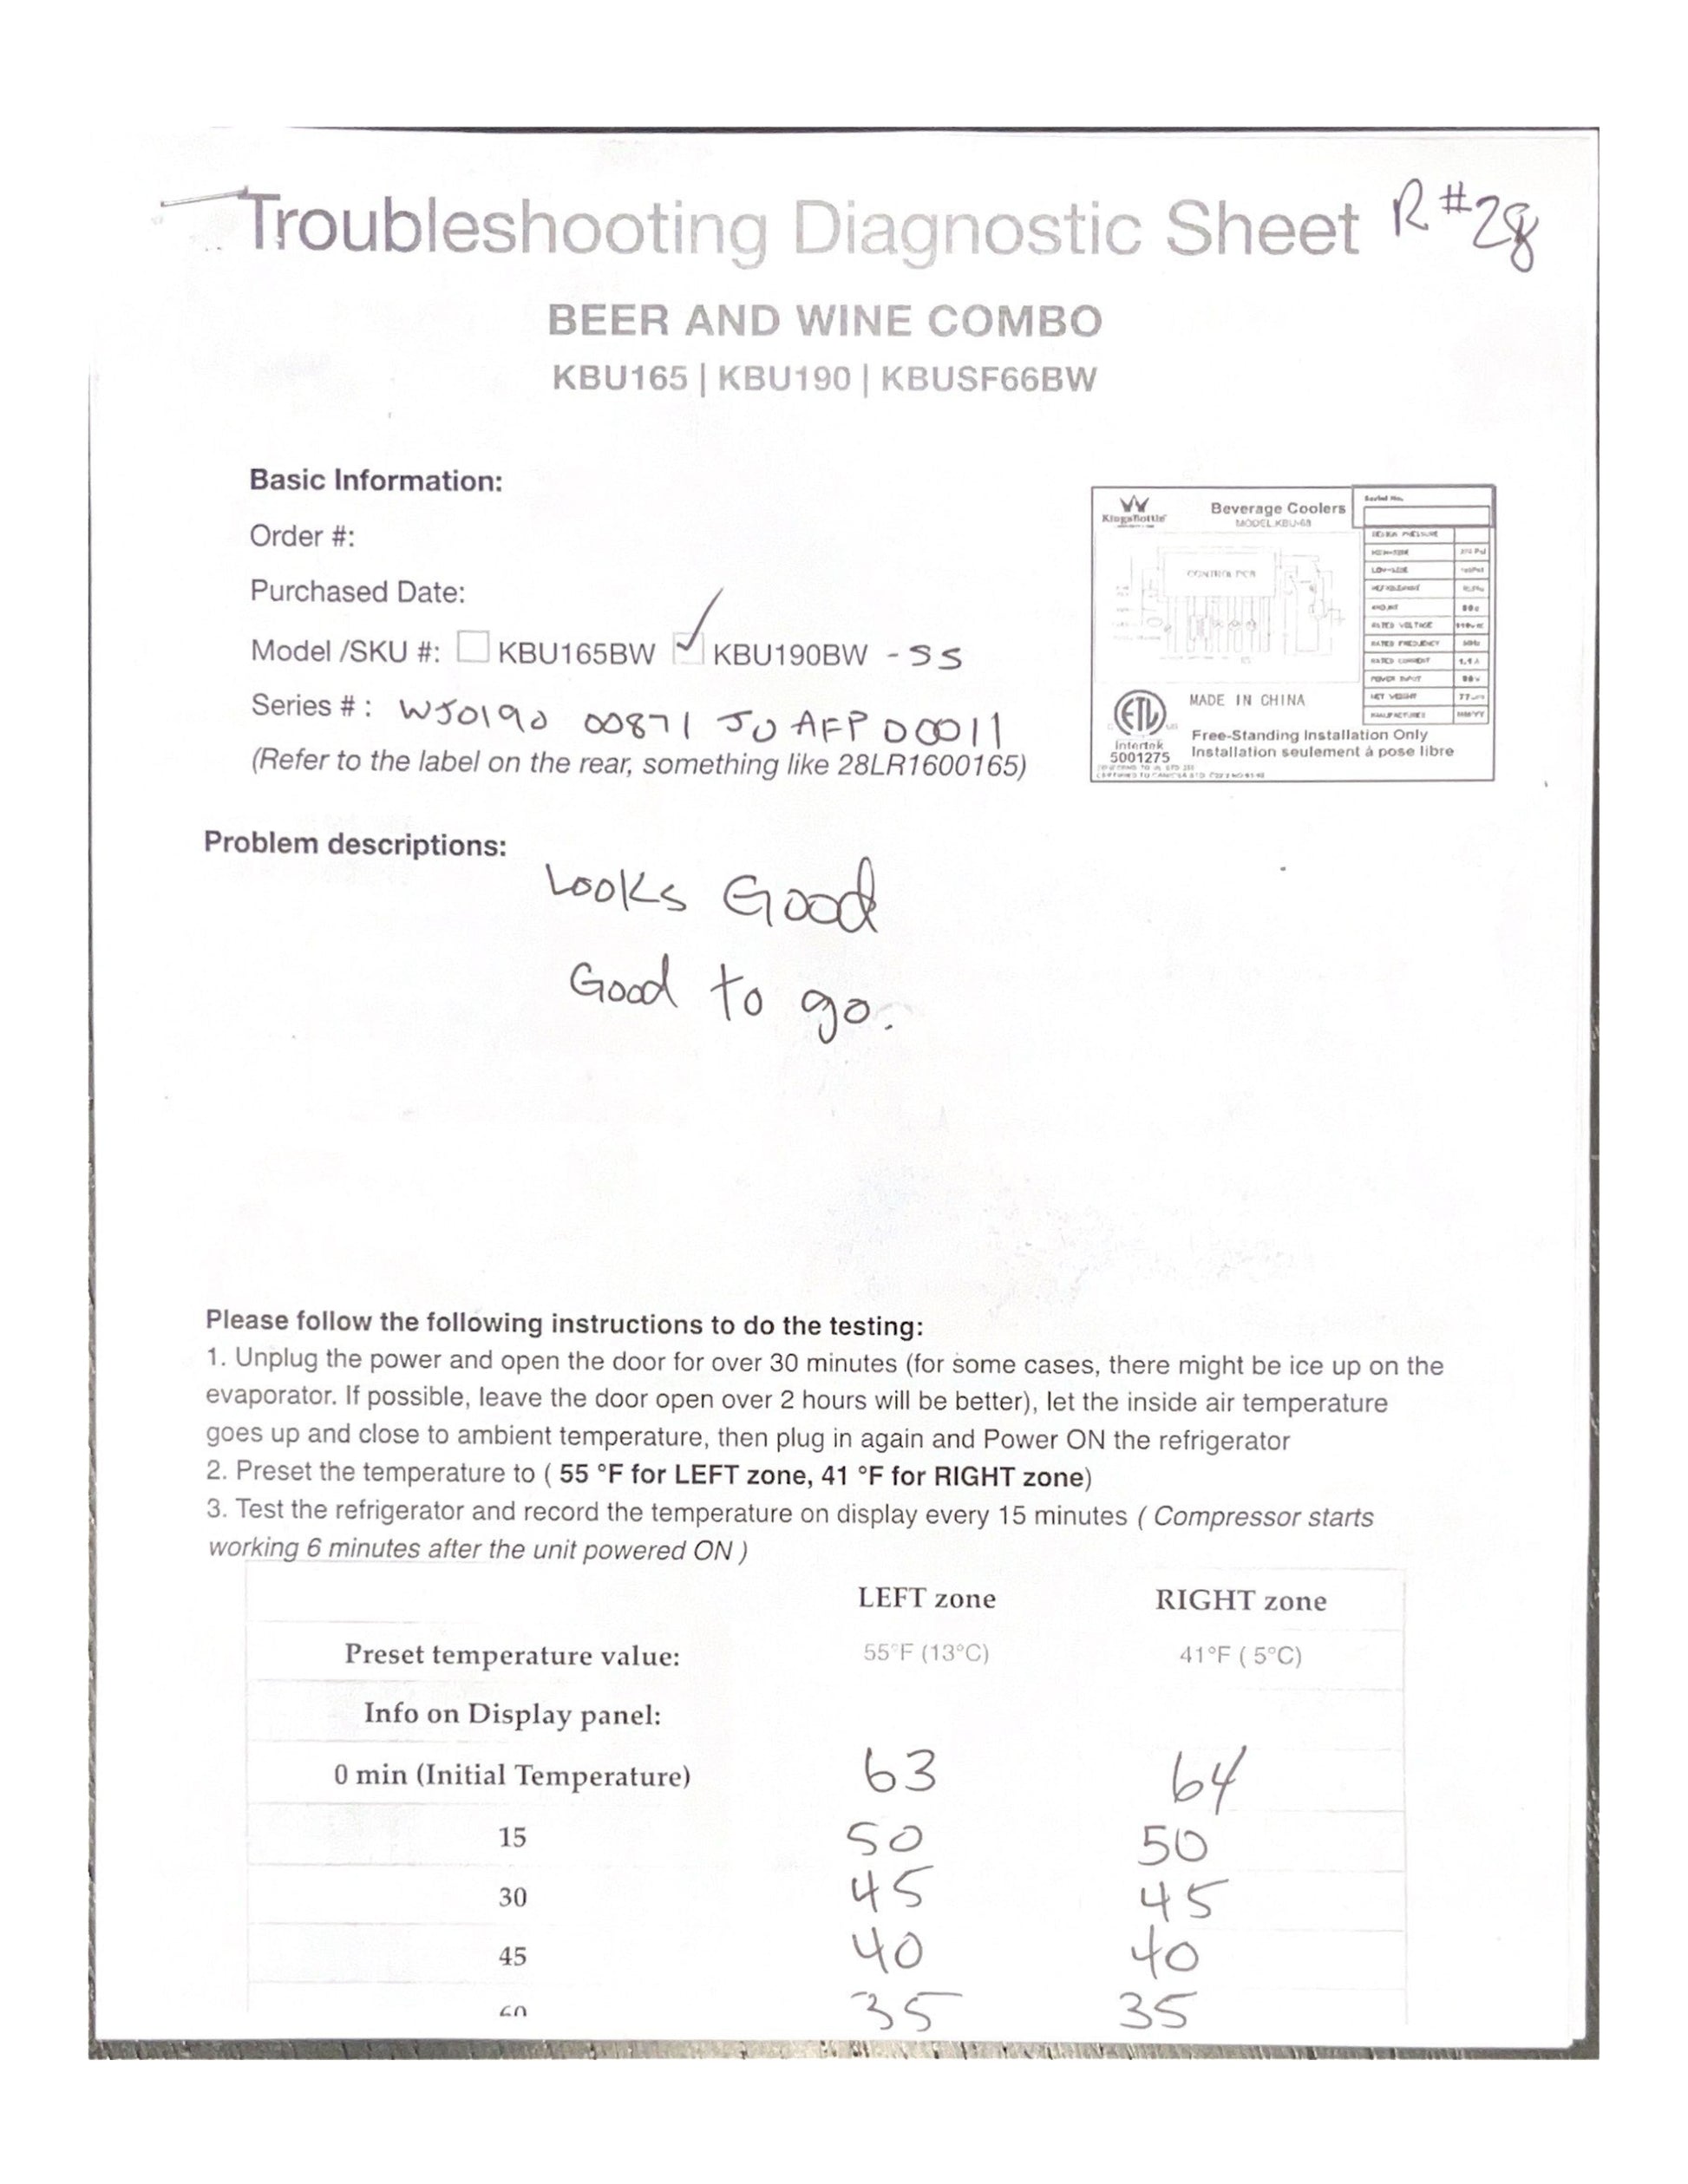 Troubleshooting Diagnostic Sheet R#28
BEER AND WINE COMBO
KBU165 | KBU190 | KBUSF66BW
Basic Information:
Order #:
Purchased Date:
Model /SKU #: KBU165BW ✓ KBU190BW - SS
Series # : WJ0190 00871 JO AFP D0011
(Refer to the label on the rear, something like 28LR1600165)
KingsBottle
Beverage Coolers
MODEL.KBU-68
Serial No.
CONTROL PCB
MADE IN CHINA
ETL
Intertek
5001275
Free-Standing Installation Only
Installation seulement á pose libre
Problem descriptions:
Looks Good
Good to go.
Please follow the following instructions to do the testing:
1. Unplug the power and open the door for over 30 minutes (for some cases, there might be ice up on the
evaporator. If possible, leave the door open over 2 hours will be better), let the inside air temperature
goes up and close to ambient temperature, then plug in again and Power ON the refrigerator
2. Preset the temperature to ( 55 °F for LEFT zone, 41 °F for RIGHT zone)
3. Test the refrigerator and record the temperature on display every 15 minutes ( Compressor starts
working 6 minutes after the unit powered ON )
LEFT zone RIGHT zone
Preset temperature value: 55°F (13°C) 41°F ( 5°C)
Info on Display panel:
0 min (Initial Temperature) 63 64
15 50 50
30 45 45
45 40 40
60 35 35